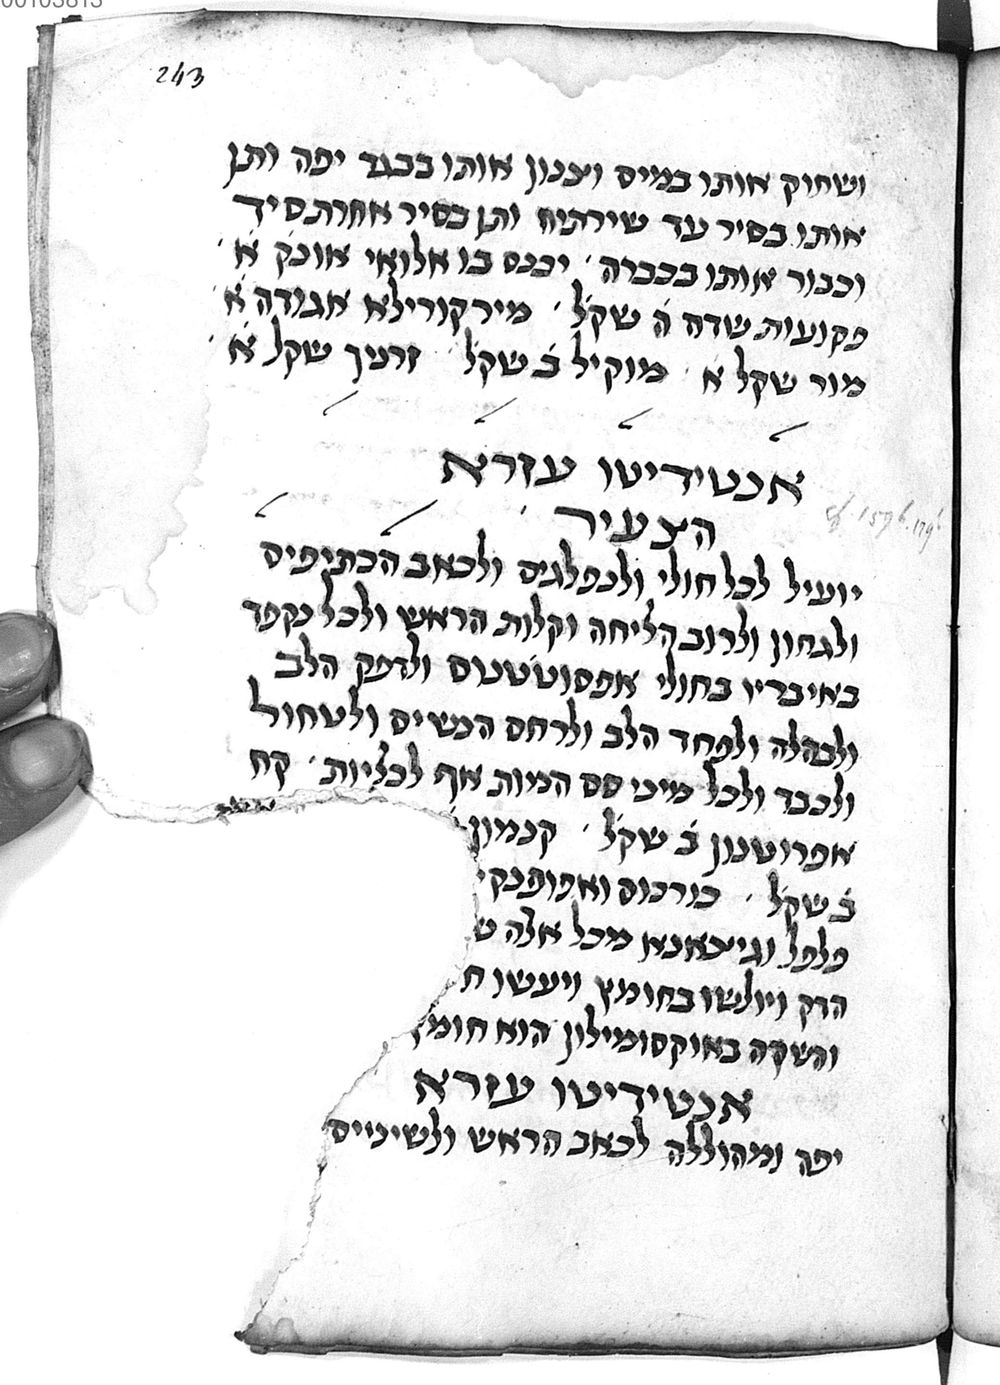 00103813
243
ושחוק אותו במיס וצנון אותו בבגד יפה ותן
אותו בסיר עד שירתיח ותן בסיר אחרת סיד
וכבור אותו בכברה יכנס בו אלואי אונק א
פקועות שדה ה שקל מירקורילא אגודה א
מור שקל א מוקיל ב שקל זרניך שקל א
אנטידיטו עזרא
הצעיר
יועיל לכל חולי ולנפלגים ולכאב הכתיפיס
ולגחון ולרוב הליחה וקלות הראש ולכל נקפד
באיבריו בחולי ולדפק הלב
ולבהלה ולפחד הלב ולרחם הנשיס ולטחול
ולכבד ולכל מיני סס המות אף לכליות קח
אפרוטנון ב שקל קנמון
ב שקל כורכוס
פלפל מכל אלה ש
הדק ויולשו בחומץ ויעשו ח
והשקה באוקסומילון הוא חומץ
אנטידיטו עזרא
יפה ומהוללה לכאב הראש ולשינייס